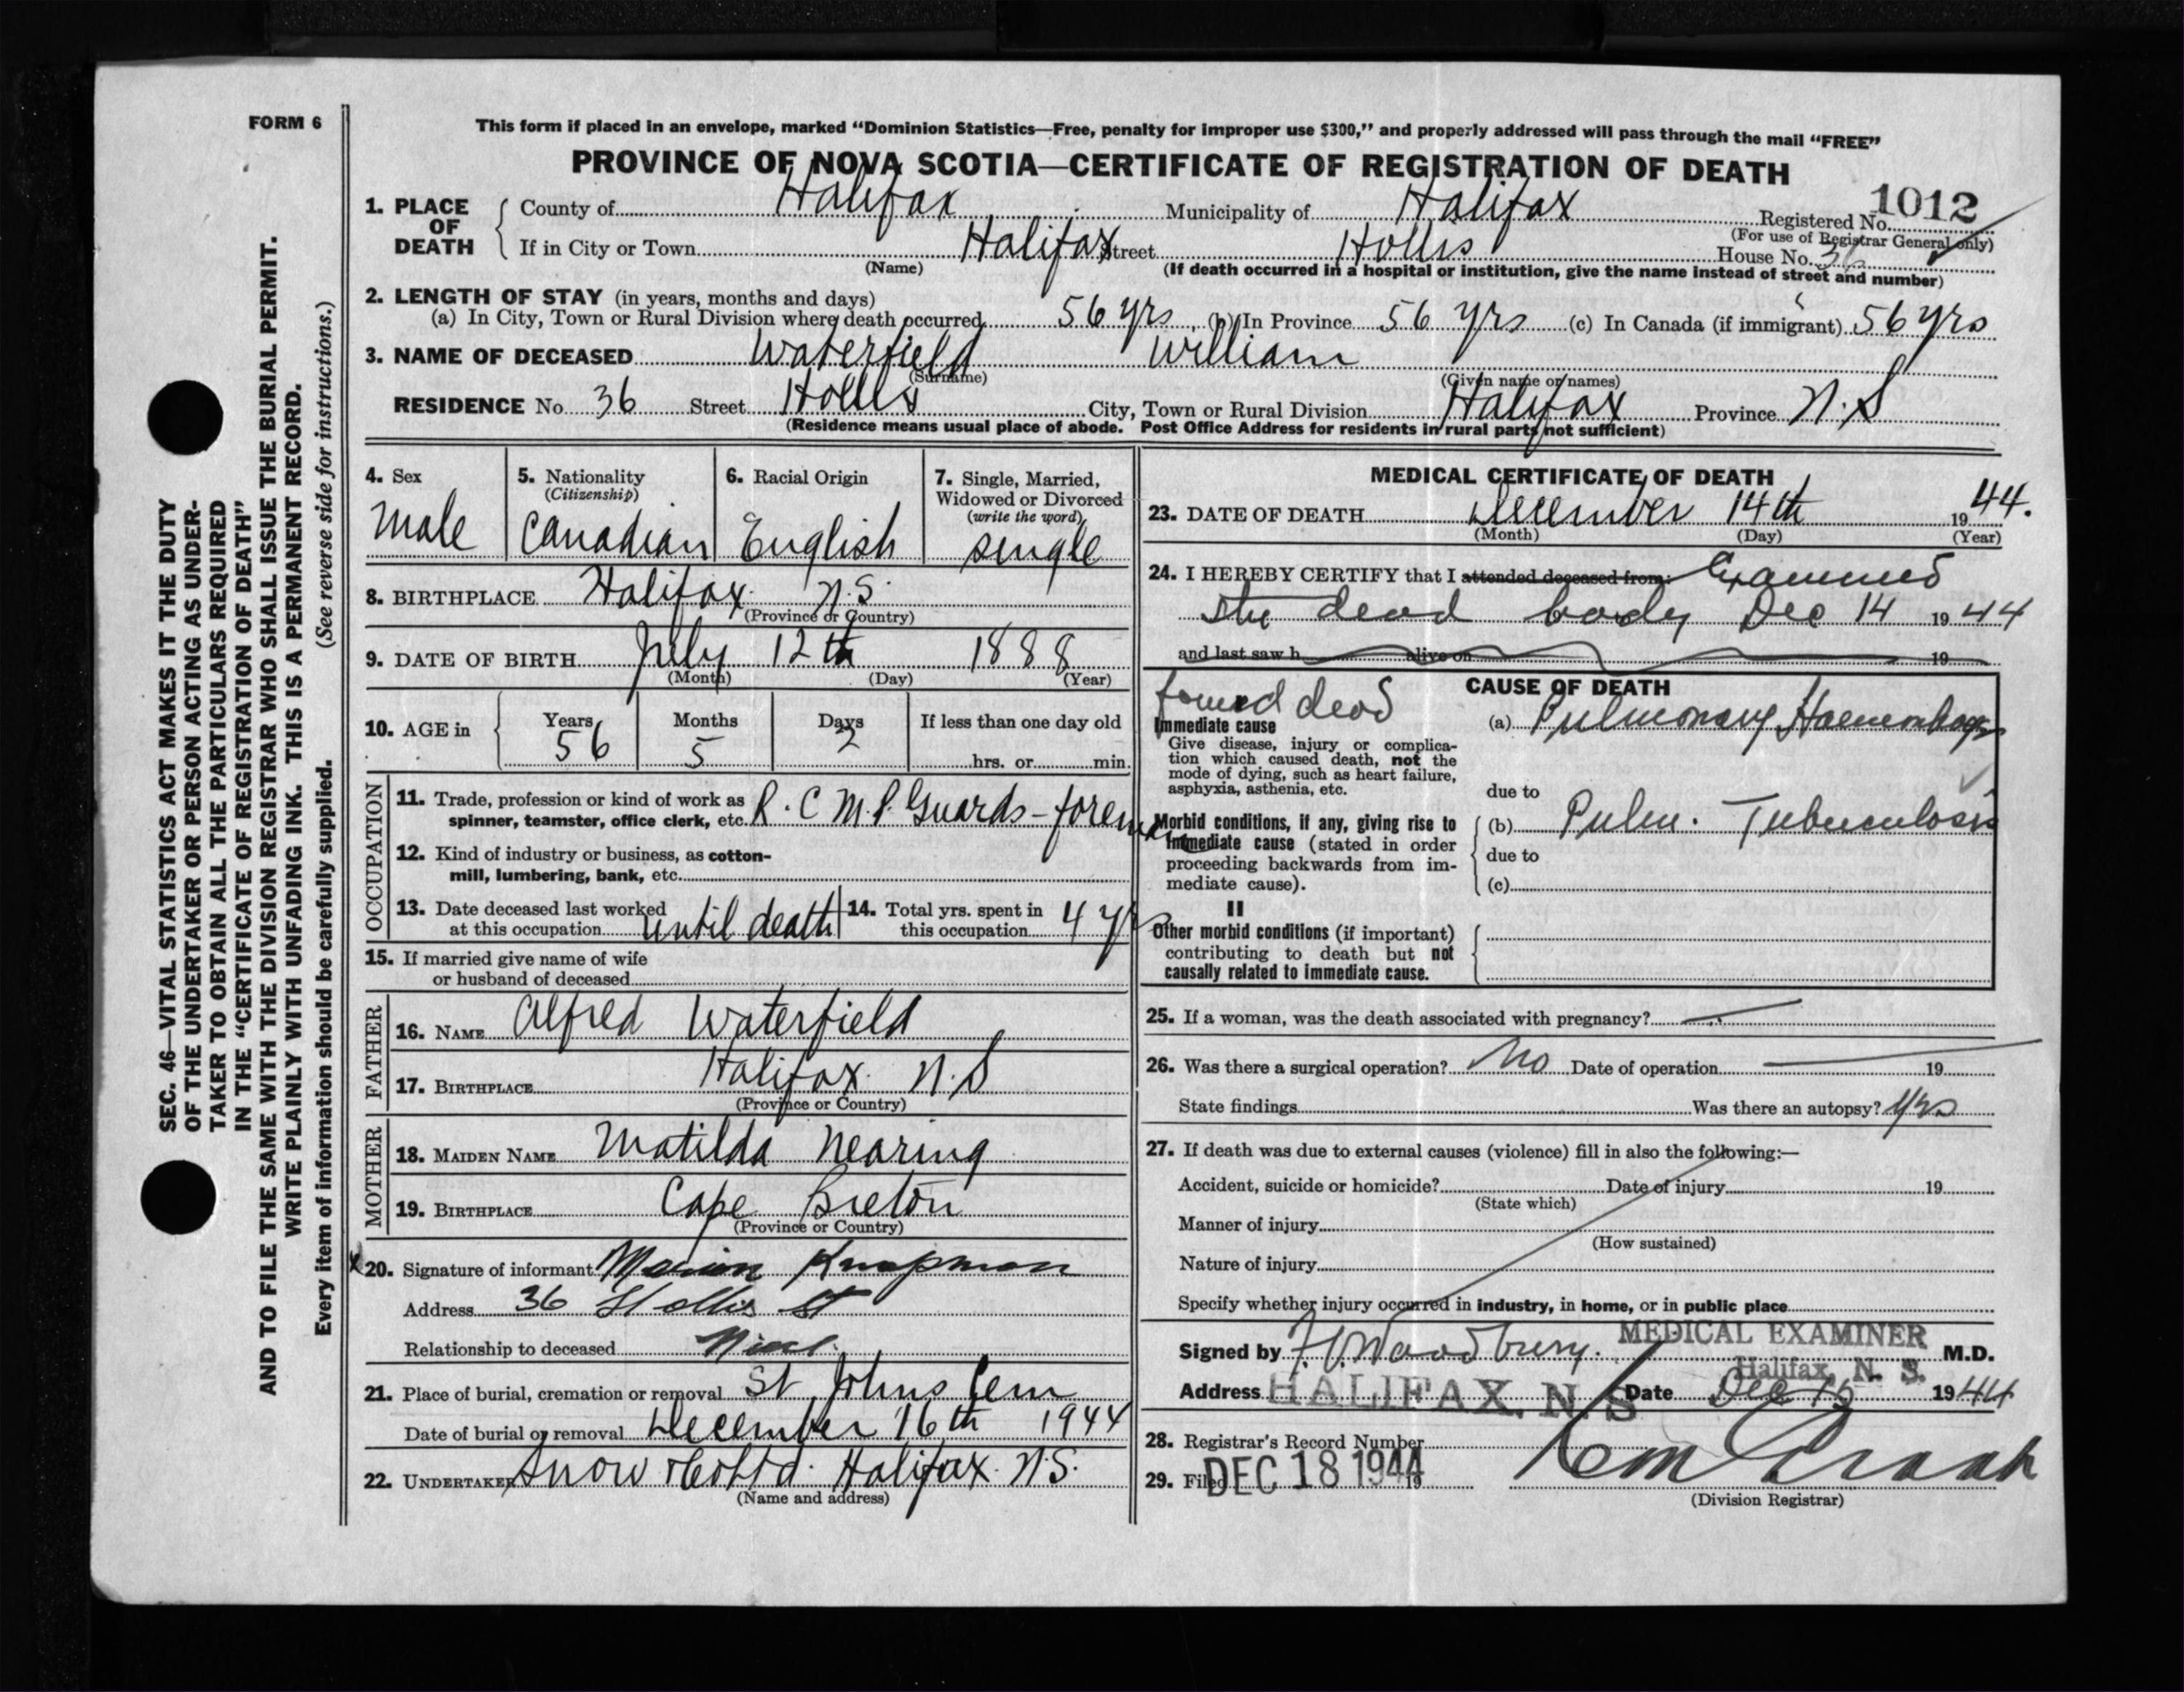 FORM 6
This form if placed in an envelope, marked “Dominion Statistics—Free, penalty for improper use $300,” and properly addressed will pass through the mail “FREE”
PROVINCE OF NOVA SCOTIA—CERTIFICATE OF REGISTRATION OF DEATH
1012
1. PLACE OF DEATH County of Halifax Municipality of Halifax Registered No.
(For use of Registrar General only)
If in City or Town Halifax Street Hollis House No. 36
(Name) (If death occurred in a hospital or institution, give the name instead of street and number)
2. LENGTH OF STAY (in years, months and days)
(a) In City, Town or Rural Division where death occurred 56 yrs, (b) In Province 56 yrs (c) In Canada (if immigrant) 56 yrs
3. NAME OF DECEASED Waterfield William
(Surname) (Given name or names)
RESIDENCE No 36 Street Hollis City, Town or Rural Division Halifax Province N.S
(Residence means usual place of abode. Post Office Address for residents in rural parts not sufficient)
4. Sex Male
5. Nationality (Citizenship) Canadian
6. Racial Origin English
7. Single, Married, Widowed or Divorced (write the word) single
8. BIRTHPLACE Halifax N.S.
(Province or Country)
9. DATE OF BIRTH July 12th 1888
(Month) (Day) (Year)
10. AGE in Years 56 Months 5 Days 2 If less than one day old
hrs. or min.
OCCUPATION
11. Trade, profession or kind of work as spinner, teamster, office clerk, etc. R.C.M.P. Guards - foreman
12. Kind of industry or business, as cotton-mill, lumbering, bank, etc.
13. Date deceased last worked at this occupation until death
14. Total yrs. spent in this occupation 4 yrs
15. If married give name of wife or husband of deceased
FATHER
16. NAME Alfred Waterfield
17. BIRTHPLACE Halifax N.S
(Province or Country)
MOTHER
18. MAIDEN NAME Matilda Nearing
19. BIRTHPLACE Cape Breton
(Province or Country)
x 20. Signature of informant Marion Knapman
Address 36 Hollis St
Relationship to deceased
21. Place of burial, cremation or removal St Johns Cem
Date of burial or removal December 16th 1944
22. UNDERTAKER Snow & Co Ltd. Halifax N.S.
(Name and address)
MEDICAL CERTIFICATE OF DEATH
23. DATE OF DEATH December 14th 1944.
(Month) (Day) (Year)
24. I HEREBY CERTIFY that I attended deceased from: Examined
the dead body Dec 14 1944
and last saw h alive on 19
found dead
CAUSE OF DEATH
Immediate cause
Give disease, injury or complica-
tion which caused death, not the
mode of dying, such as heart failure,
asphyxia, asthenia, etc.
(a) Pulmonary Haemorrhage
due to
Morbid conditions, if any, giving rise to
immediate cause (stated in order
proceeding backwards from im-
mediate cause).
(b) Pulm. Tuberculosis
due to
(c)
II
Other morbid conditions (if important)
contributing to death but not
causally related to immediate cause.
25. If a woman, was the death associated with pregnancy?
26. Was there a surgical operation? No Date of operation 19
State findings Was there an autopsy? yes
27. If death was due to external causes (violence) fill in also the following:—
Accident, suicide or homicide? Date of injury 19
(State which)
Manner of injury
(How sustained)
Nature of injury
Specify whether injury occurred in industry, in home, or in public place
Signed by Woodbury. MEDICAL EXAMINER M.D.
Halifax, N. S.
Address HALIFAX, N. S Date Dec 15 1944
28. Registrar's Record Number
29. Filed DEC 18 1944 19
(Division Registrar)
SEC. 46—VITAL STATISTICS ACT MAKES IT THE DUTY
OF THE UNDERTAKER OR PERSON ACTING AS UNDER-
TAKER TO OBTAIN ALL THE PARTICULARS REQUIRED
IN THE “CERTIFICATE OF REGISTRATION OF DEATH”
AND TO FILE THE SAME WITH THE DIVISION REGISTRAR WHO SHALL ISSUE THE BURIAL PERMIT.
WRITE PLAINLY WITH UNFADING INK. THIS IS A PERMANENT RECORD.
Every item of information should be carefully supplied. (See reverse side for instructions.)